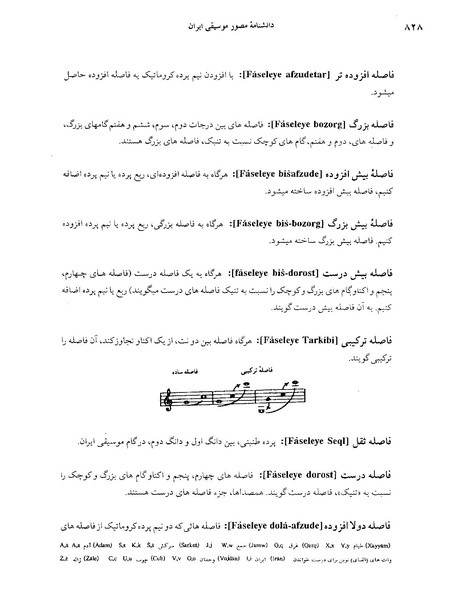 ۸۲۸
دانشنامهٔ مصور موسیقی ایران
فاصله افزوده تر [Fáseleye afzudetar]: با افزودن نیم پرده کروماتیک به فاصله افزوده حاصل
میشود.
فاصله بزرگ [Fáseleye bozorg]: فاصله های بین درجات دوم، سوم، ششم و هفتم گامهای بزرگ،
و فاصله های، دوم و هفتم، گام های کوچک نسبت به تنیک، فاصله های بزرگ هستند.
فاصلهٔ بیش افزوده [Fáseleye bišafzude]: هرگاه به فاصله افزوده‌ای، ربع پرده یا نیم پرده اضافه
کنیم، فاصله بیش افزوده ساخته میشود.
فاصلهٔ بیش بزرگ [Fáseleye biš-bozorg]: هرگاه به فاصله بزرگی، ربع پرده یا نیم پرده افزوده
کنیم. فاصله بیش بزرگ ساخته میشود.
فاصله بیش درست [fáseleye biš-dorost]: هرگاه به یک فاصله درست (فاصله های چهارم،
پنجم و اکتاو گام های بزرگ و کوچک را نسبت به تنیک فاصله های درست میگویند) ربع یا نیم پرده اضافه
کنیم. به آن فاصله بیش درست گویند.
فاصله ترکیبی [Fáseleye Tarkibi]: هرگاه فاصله بین دو نت، از یک اکتاو تجاوز کند، آن فاصله را
ترکیبی گویند.
فاصلهٔ ترکیبی
فاصله ساده
فاصله ثقل [Fáseleye Seql]: پرده طنینی، بین دانگ اول و دانگ دوم، درگام موسیقی ایران.
فاصله درست [Fáseleye dorost]: فاصله های چهارم، پنجم و اکتاو گام های بزرگ و کوچک را
نسبت به «تنیک»، فاصله درست گویند. همصداها، جزء فاصله های درست هستند.
فاصله دولا افزوده [Fáseleye dolá-afzude]: فاصله هائی که دو نیم پرده کروماتیک از فاصله های